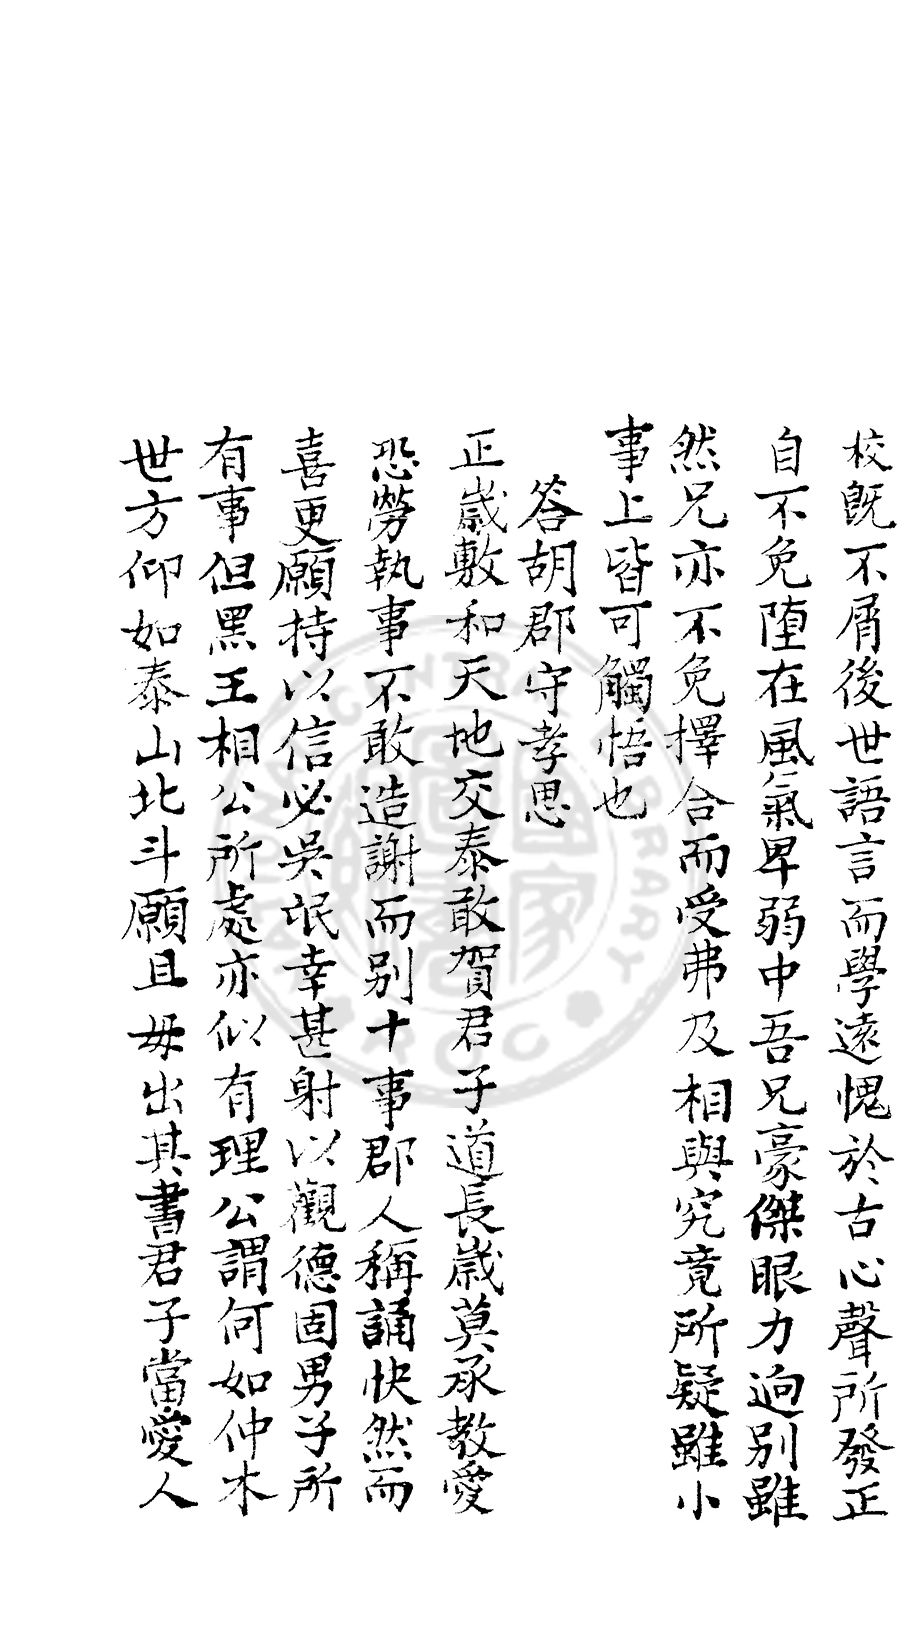 校既不屑後世語言而學遠愧於古心聲所發正
自不免墮在風氣卑弱中吾兄豪傑眼力迥別雖
然兄亦不免擇合而受弗及相與究竟所疑雖小
事上皆可觸悟也
答胡郡守孝思
正歲敷和天地交泰敢賀君子道長歲莫承教愛
恐勞執事不敢造謝而別十事郡人稱誦快然而
喜更願持以信必吳氓幸甚射以觀德固男子所
有事但黑王相公所處亦似有理公謂何如仲木
世方仰如泰山北斗願且毋出其書君子當愛人